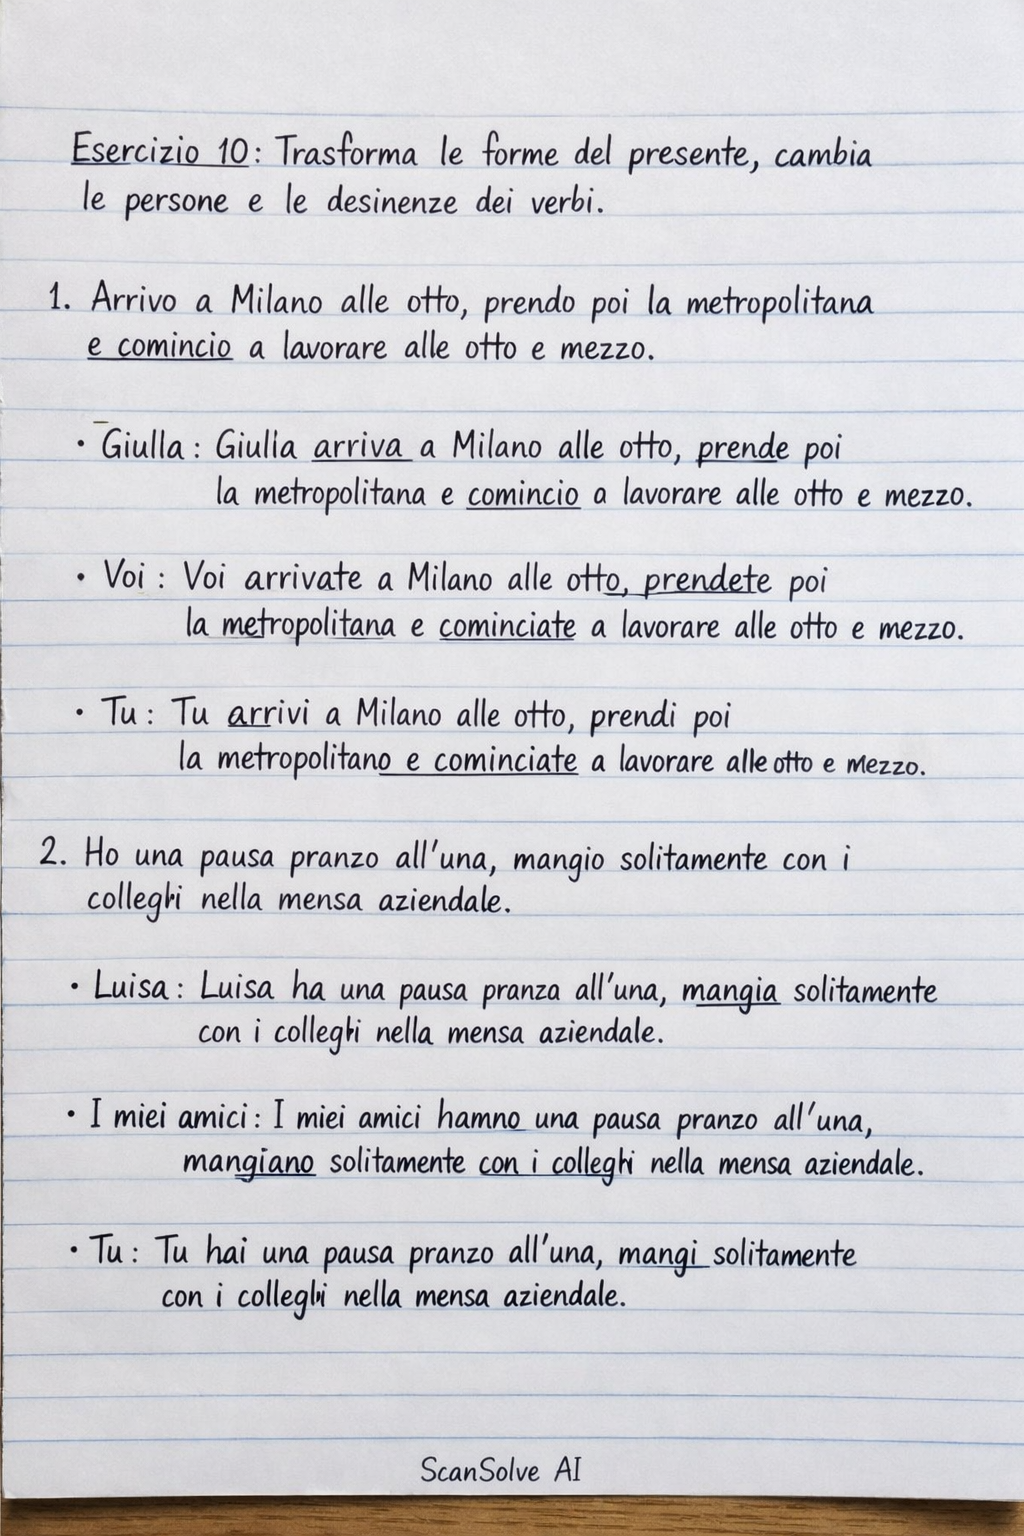 Esercizio 10: Trasforma le forme del presente, cambia
le persone e le desinenze dei verbi.
1. Arrivo a Milano alle otto, prendo poi la metropolitana
e comincio a lavorare alle otto e mezzo.
• Giulla: Giulia arriva a Milano alle otto, prende poi
la metropolitana e comincio a lavorare alle otto e mezzo.
• Voi: Voi arrivate a Milano alle otto, prendete poi
la metropolitana e cominciate a lavorare alle otto e mezzo.
• Tu: Tu arrivi a Milano alle otto, prendi poi
la metropolitano e cominciate a lavorare alle otto e mezzo.
2. Ho una pausa pranzo all'una, mangio solitamente con i
colleghi nella mensa aziendale.
• Luisa: Luisa ha una pausa pranza all'una, mangia solitamente
con i colleghi nella mensa aziendale.
• I miei amici: I miei amici hamno una pausa pranzo all'una,
mangiano solitamente con i colleghi nella mensa aziendale.
• Tu: Tu hai una pausa pranzo all'una, mangi solitamente
con i colleghi nella mensa aziendale.
ScanSolve AI